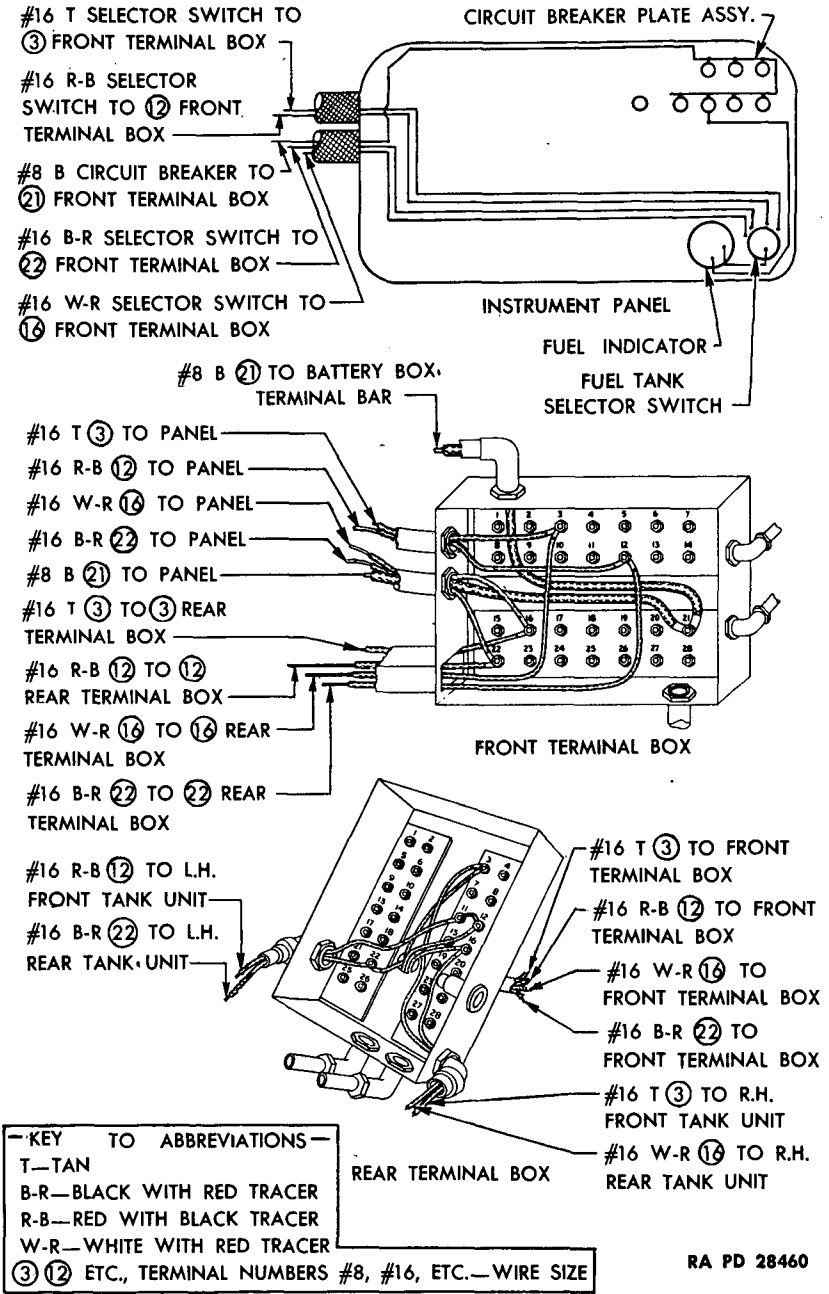 #16 T SELECTOR SWITCH TO
③ FRONT TERMINAL BOX
#16 R-B SELECTOR
SWITCH TO ⑫ FRONT
TERMINAL BOX
#8 B CIRCUIT BREAKER TO
㉑ FRONT TERMINAL BOX
#16 B-R SELECTOR SWITCH TO
㉒ FRONT TERMINAL BOX
#16 W-R SELECTOR SWITCH TO
⑯ FRONT TERMINAL BOX
CIRCUIT BREAKER PLATE ASSY.
INSTRUMENT PANEL
FUEL INDICATOR
FUEL TANK
SELECTOR SWITCH
#8 B ㉑ TO BATTERY BOX
TERMINAL BAR
#16 T ③ TO PANEL
#16 R-B ⑫ TO PANEL
#16 W-R ⑯ TO PANEL
#16 B-R ㉒ TO PANEL
#8 B ㉑ TO PANEL
#16 T ③ TO ③ REAR
TERMINAL BOX
#16 R-B ⑫ TO ⑫
REAR TERMINAL BOX
#16 W-R ⑯ TO ⑯ REAR
TERMINAL BOX
#16 B-R ㉒ TO ㉒ REAR
TERMINAL BOX
1 2 3 4 5 6 7
8 9 10 11 12 13 14
15 16 17 18 19 20 21
22 23 24 25 26 27 28
FRONT TERMINAL BOX
#16 R-B ⑫ TO L.H.
FRONT TANK UNIT
#16 B-R ㉒ TO L.H.
REAR TANK UNIT
1 2
5 6
9 10
13 14
17 18
21 22
25 26
3 4
7 8
11 12
15 16
19 20
27 28
#16 T ③ TO FRONT
TERMINAL BOX
#16 R-B ⑫ TO FRONT
TERMINAL BOX
#16 W-R ⑯ TO
FRONT TERMINAL BOX
#16 B-R ㉒ TO
FRONT TERMINAL BOX
#16 T ③ TO R.H.
FRONT TANK UNIT
#16 W-R ⑯ TO R.H.
REAR TANK UNIT
REAR TERMINAL BOX
—KEY TO ABBREVIATIONS—
T—TAN
B-R—BLACK WITH RED TRACER
R-B—RED WITH BLACK TRACER
W-R—WHITE WITH RED TRACER
③ ⑫ ETC., TERMINAL NUMBERS #8, #16, ETC.—WIRE SIZE
RA PD 28460